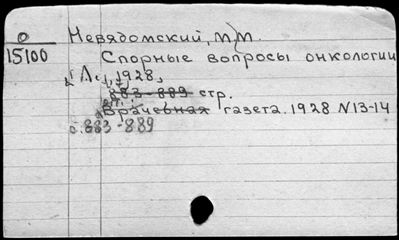 О Невядомский, М.М.
15100 Спорные вопросы онкологии
Л., 1928,
883-889 стр.
Врачебная газета. 1928 N13-14
с. 883-889